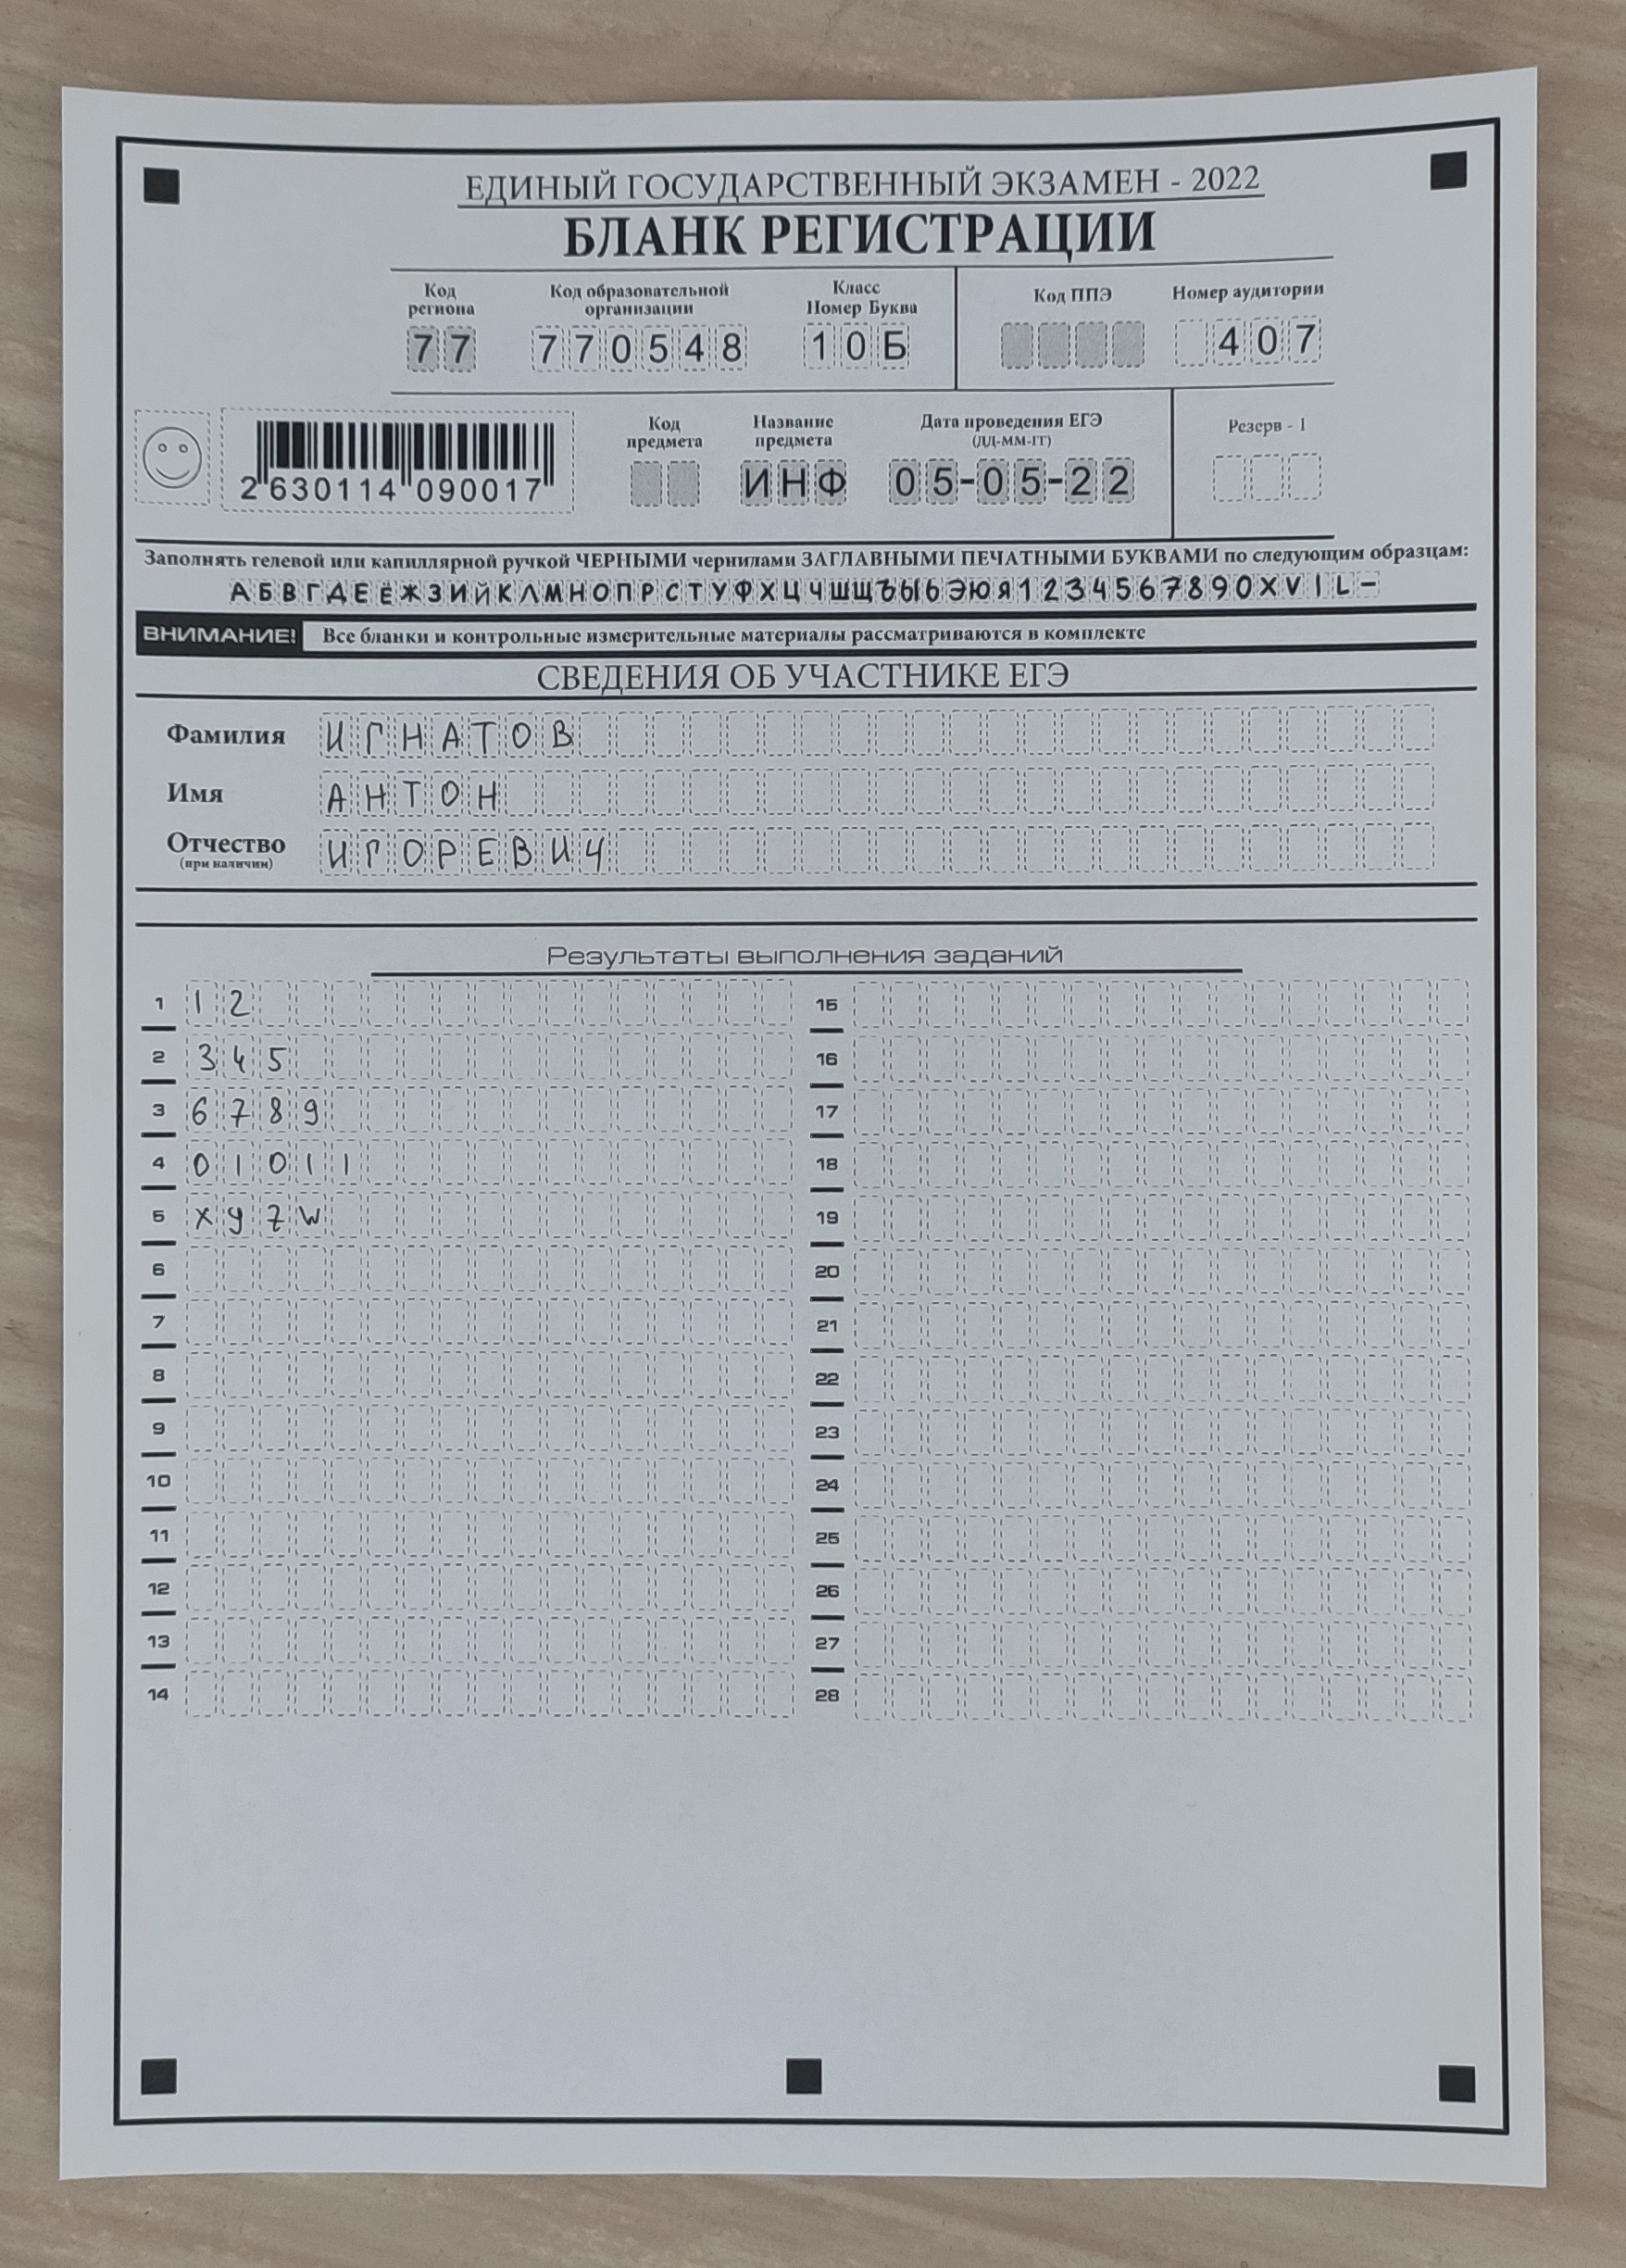 ЕДИНЫЙ ГОСУДАРСТВЕННЫЙ ЭКЗАМЕН - 2022
БЛАНК РЕГИСТРАЦИИ
Код региона
Код образовательной организации
Класс Номер Буква
Код ППЭ
Номер аудитории
77 770548 10Б 407
Код предмета
Название предмета
Дата проведения ЕГЭ (ДД-ММ-ГГ)
Резерв - 1
2630114090017
ИНФ 05-05-22
Заполнять гелевой или капиллярной ручкой ЧЕРНЫМИ чернилами ЗАГЛАВНЫМИ ПЕЧАТНЫМИ БУКВАМИ по следующим образцам:
АБВГДЕЁЖЗИЙКЛМНОПРСТУФХЦЧШЩЪЫЬЭЮЯ1234567890XVIL-
ВНИМАНИЕ! Все бланки и контрольные измерительные материалы рассматриваются в комплекте
СВЕДЕНИЯ ОБ УЧАСТНИКЕ ЕГЭ
Фамилия ИГНАТОВ
Имя АНТОН
Отчество ИГОРЕВИЧ
(при наличии)
Результаты выполнения заданий
1 12 15
2 345 16
3 6789 17
4 01011 18
5 xyzw 19
6 20
7 21
8 22
9 23
10 24
11 25
12 26
13 27
14 28